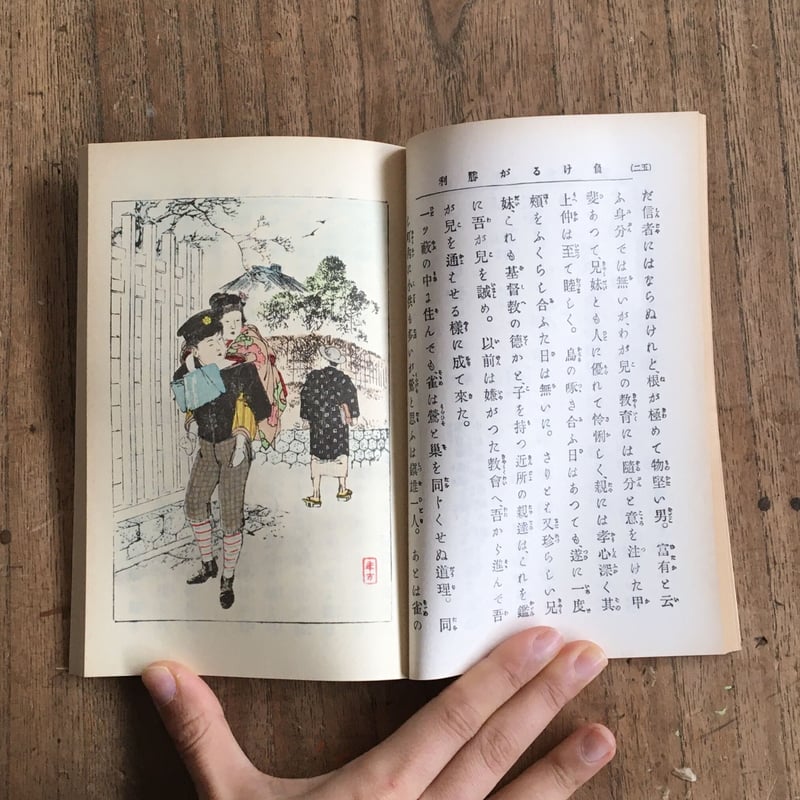 負けるが勝利
だ信者にはならぬけれど、根が極めて物堅い男。富有と云
ふ身分では無いがわが兒の教育には隨分と意を注けた甲
斐あつて、兄妹とも人に優れて怜悧しく、親には孝心深く其
上仲は至て睦しく。鳥の啄き合ふ日はあつても、遂に一度
頬をふくらし合ふた日は無いに。さりとも又珍らしい兄
妹、これも基督教の德かと子を持つ近所の親達は、これを鑑
に吾が兒を誡め。以前は嫌がつた教會へ吾から進んで吾
が兒を通はせる樣に成て來た。
一ツ藪の中に住んでも雀は鶯と巣を同じくせぬ道理。同
町内に小供も多いが鶯と思ふは儀雄一人。あとは雀の
年方